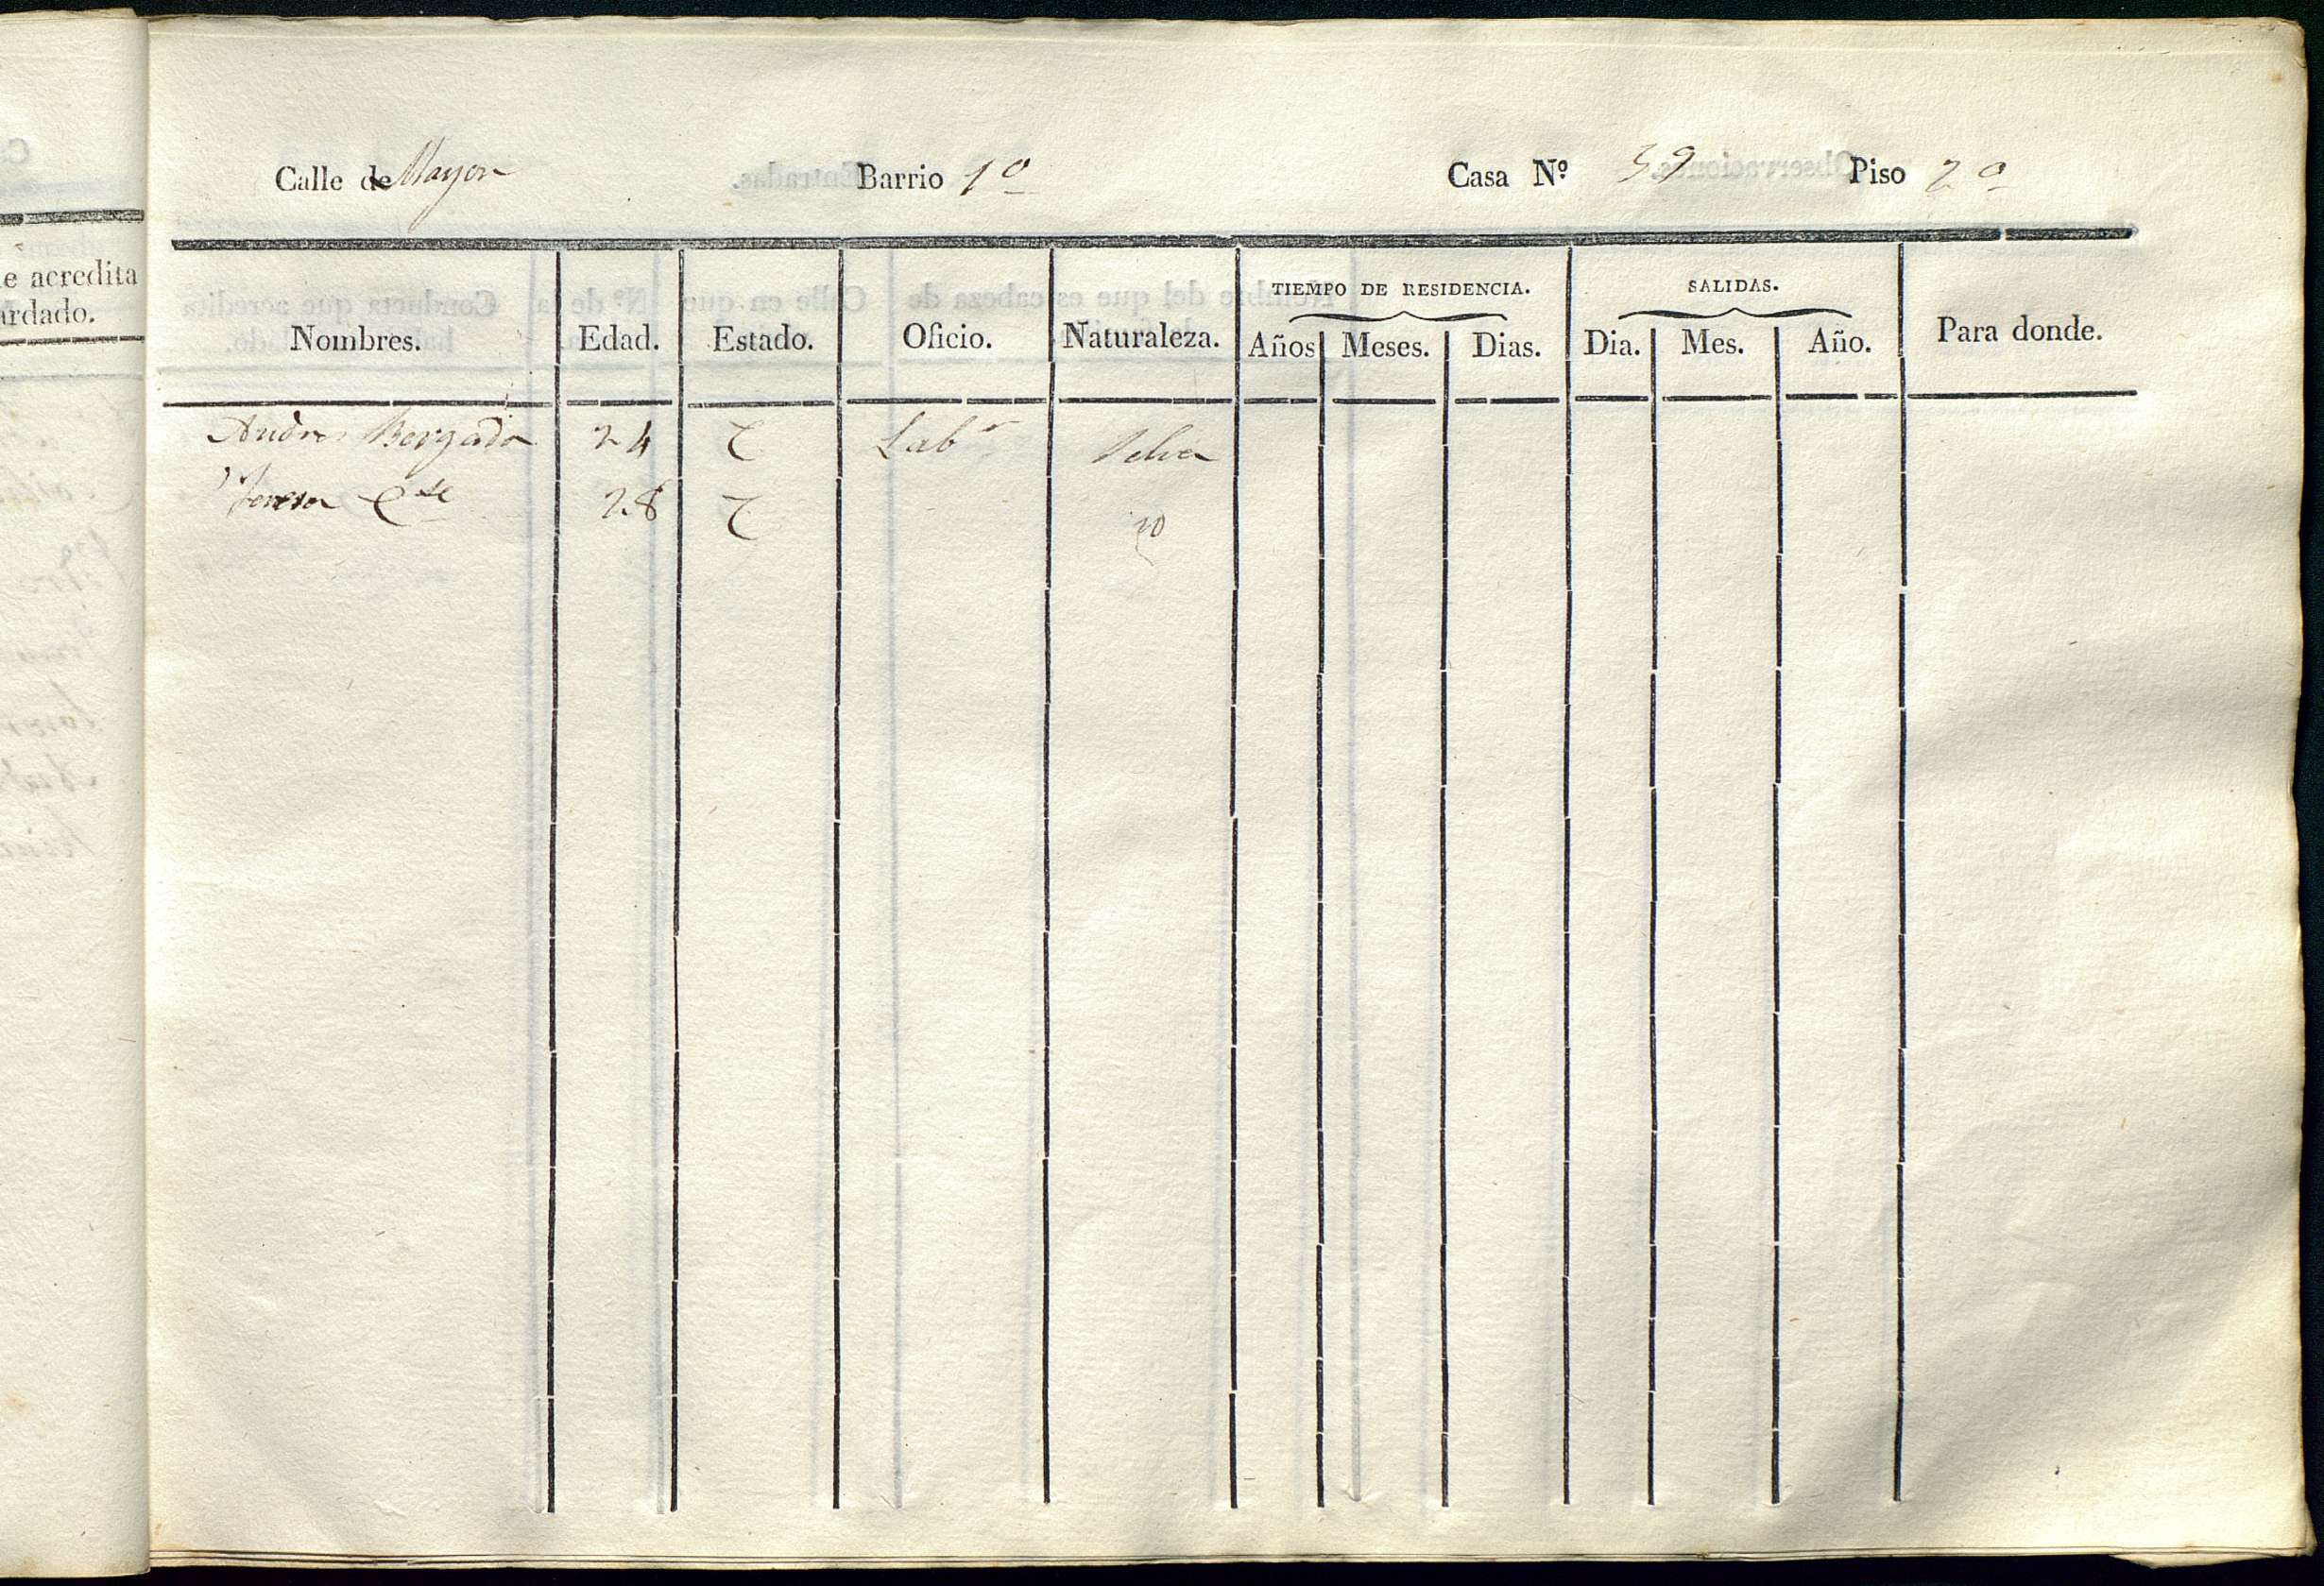 e acredita
ardado.
Calle de Mayor Barrio 1º Casa Nº 39 Piso 2º
Nombres. Edad. Estado. Oficio. Naturaleza. TIEMPO DE RESIDENCIA. Años Meses. Dias. SALIDAS. Dia. Mes. Año. Para donde.
Andres Bergada 24 C Labr Selva
Teresa 28 C